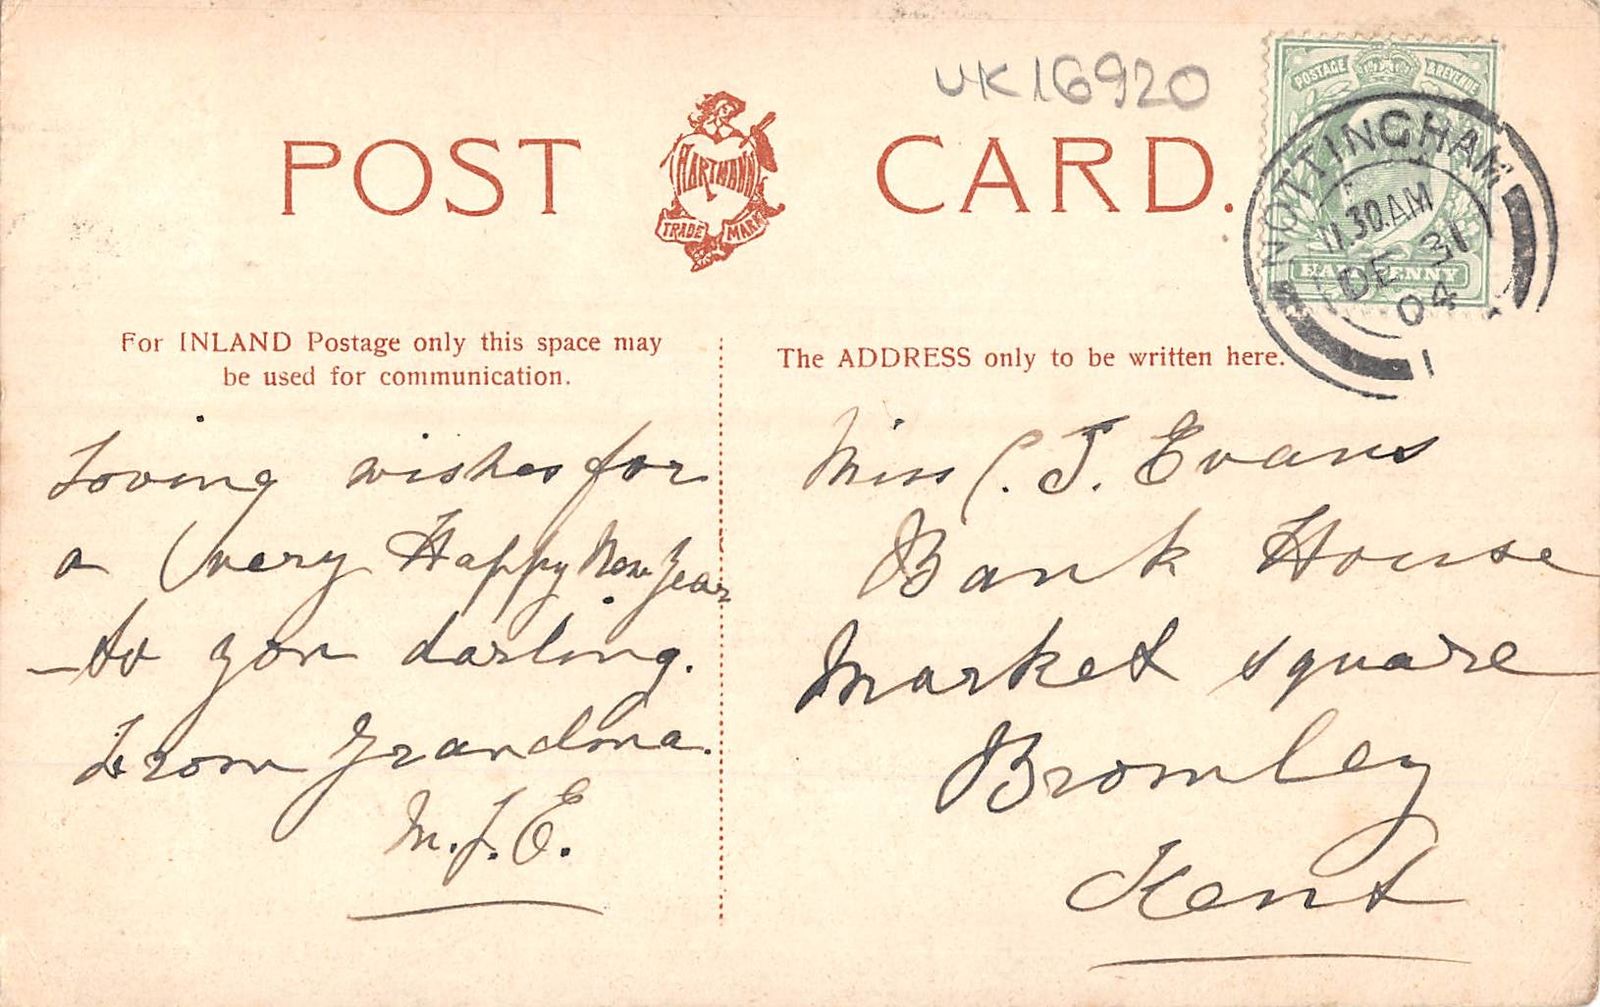 UK16920
POST CARD.
HARTMANN
TRADE MARK
POSTAGE & REVENUE
HALFPENNY
NOTTINGHAM
11.30.AM
DE 31
04
1
For INLAND Postage only this space may
be used for communication.
The ADDRESS only to be written here.
Loving wishes for
a very Happy New Year
to you darling.
From Grandma.
M.J.E.
Miss C. J. Evans
Bank House
Market Square
Bromley
Kent